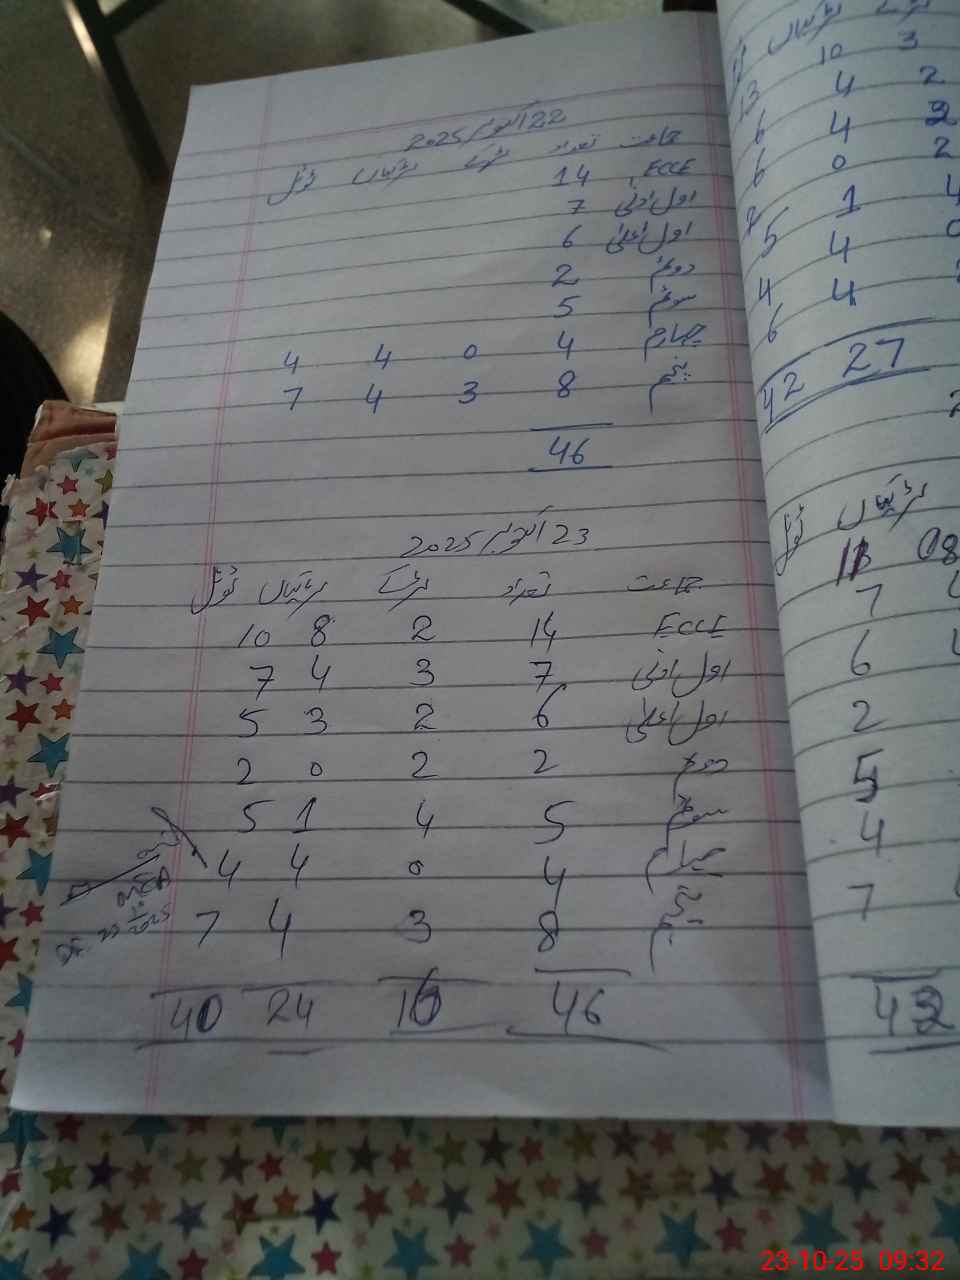 22 اکتوبر 2025
جماعت تعداد لڑکے لڑکیاں ٹوٹل
ECCE 14
اول ادنیٰ 7
اول اعلیٰ 6
دوئم 2
سوئم 5
چہارم 4 0 4 4
پنجم 8 3 4 7
46
23 اکتوبر 2025
جماعت تعداد لڑکے لڑکیاں ٹوٹل
ECCE 14 2 8 10
اول ادنیٰ 7 3 4 7
اول اعلیٰ 6 2 3 5
دوئم 2 2 0 2
سوئم 5 4 1 5
چہارم 4 0 4 4
پنجم 8 3 4 7
46 16 24 40
لڑکیاں
3 10 13
2 4 6
4 6
2 0
4 1 5
4 4
4 6
27 42
لڑکیاں ٹوٹل
08
7
6
2
5
4
7
43
23-10-25 09:32